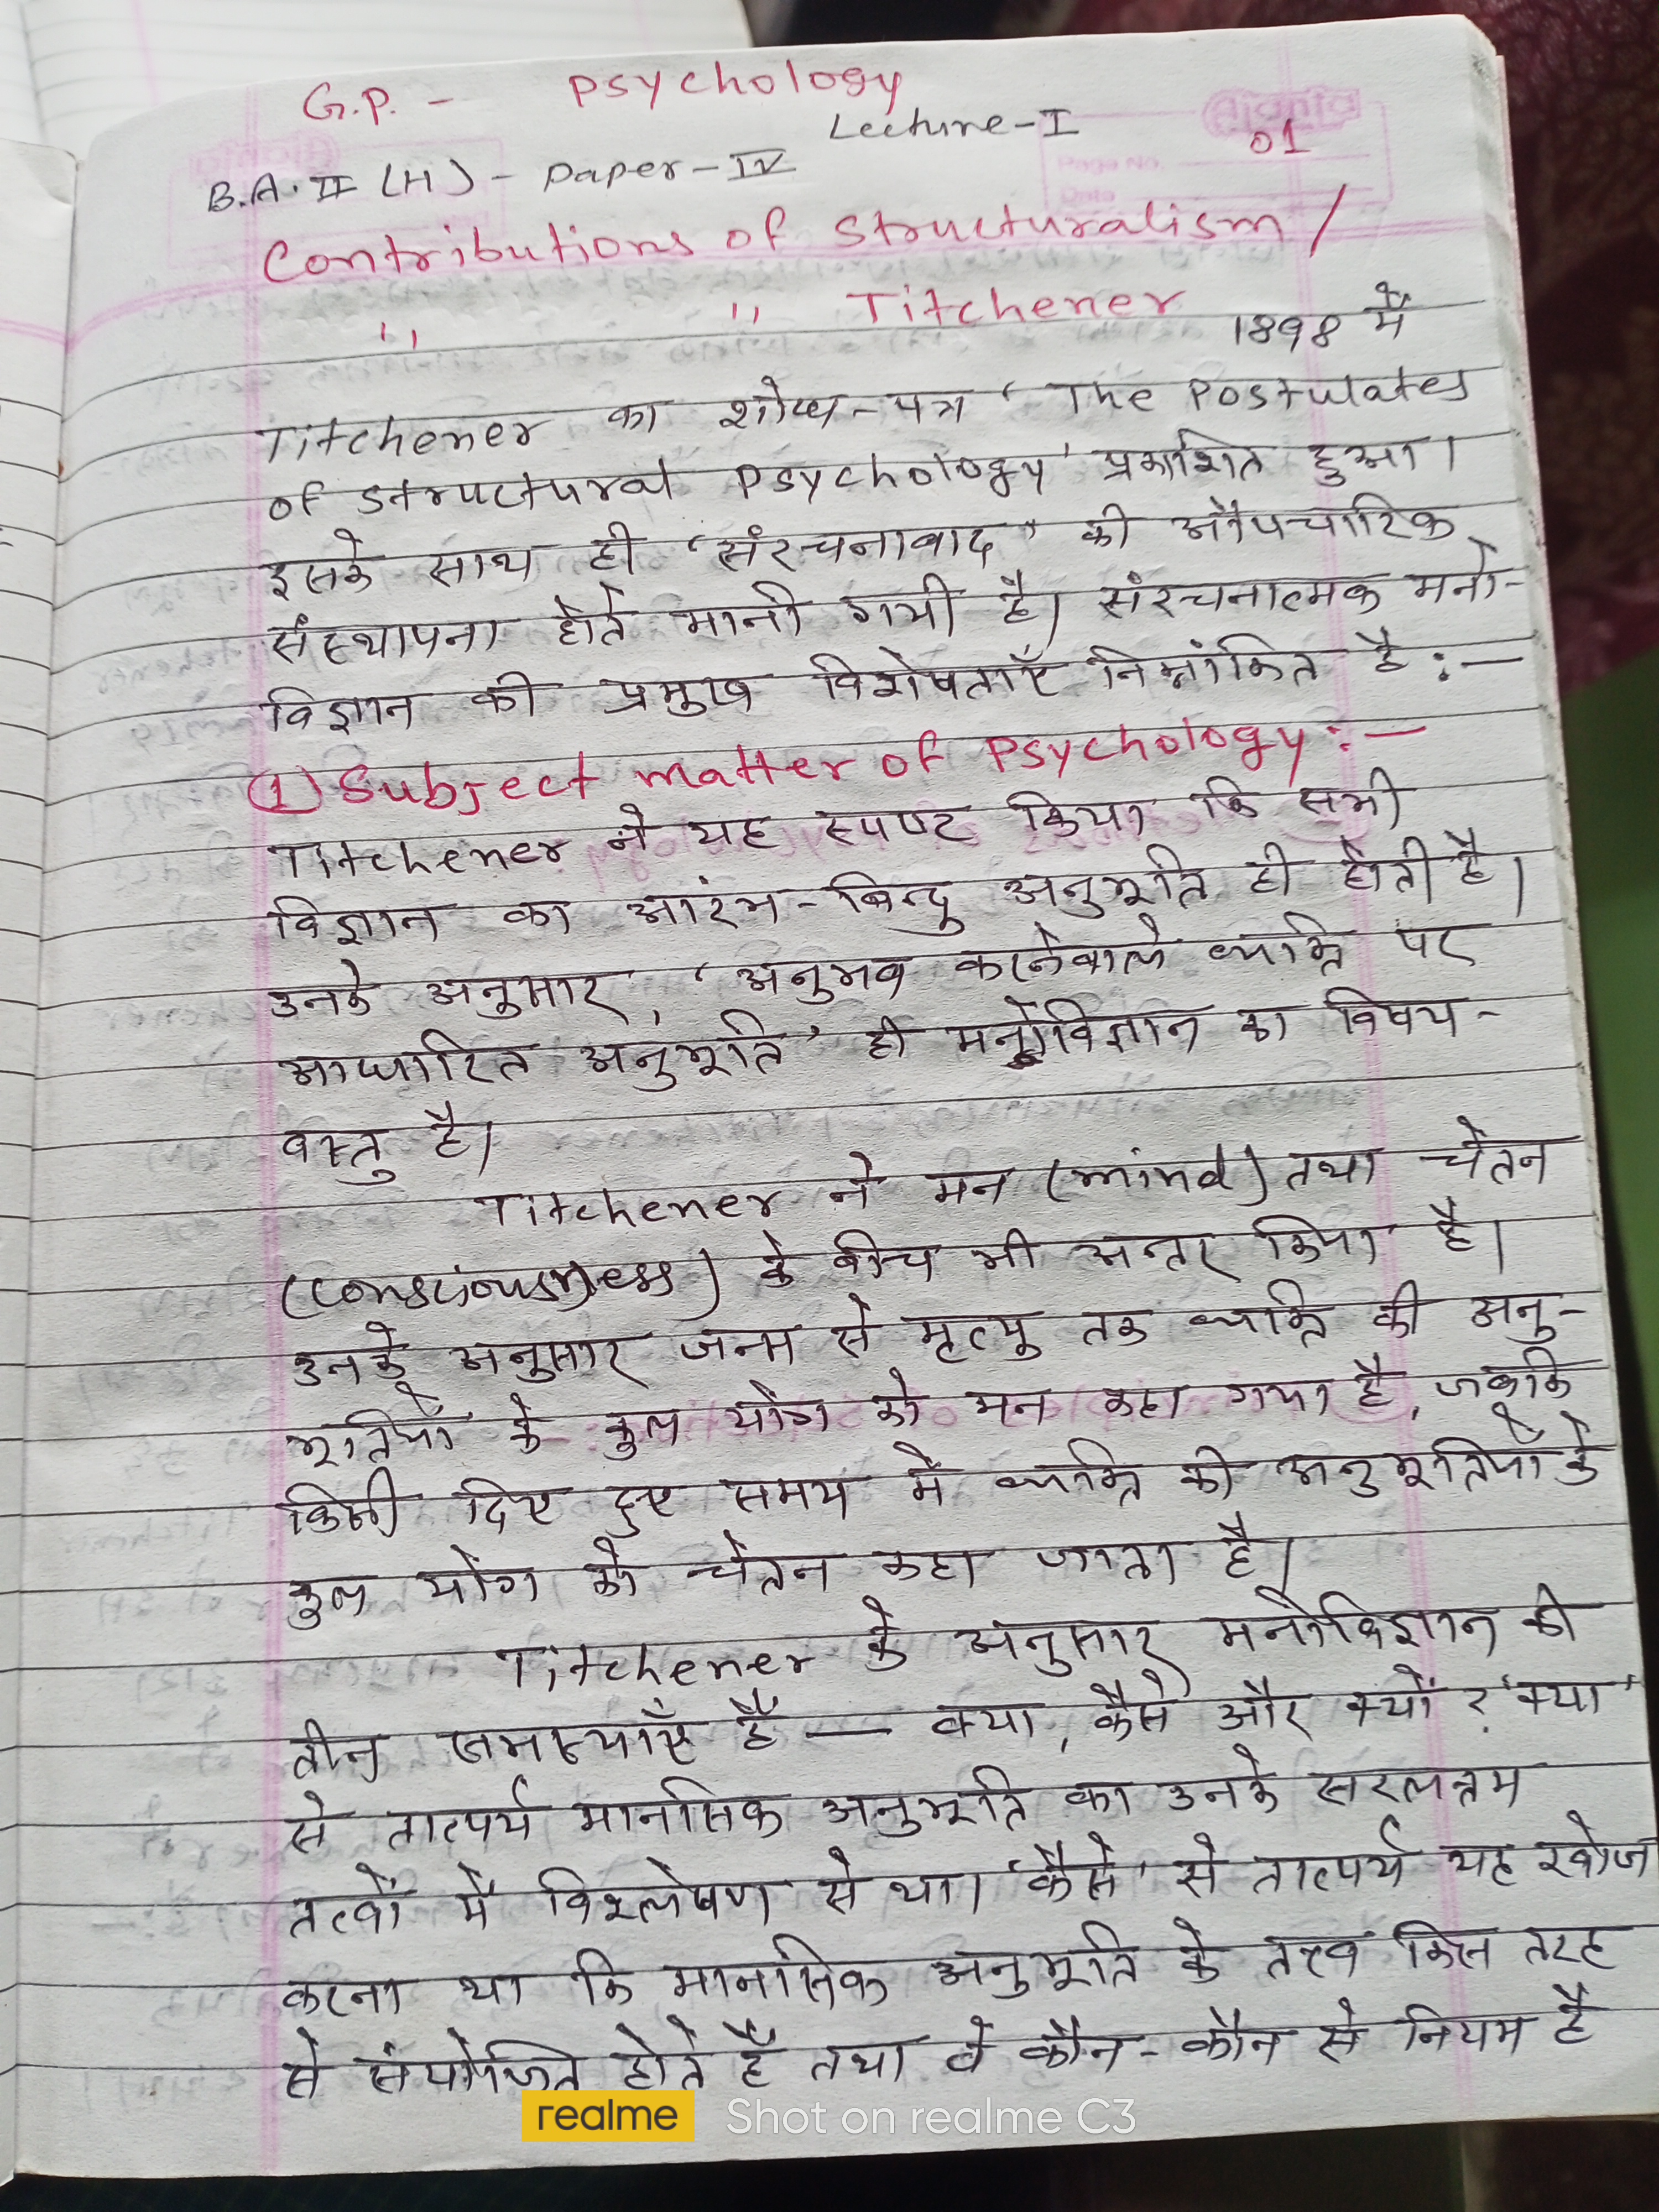 G.P. - Psychology
Lecture-I
01
B.A. II (H) - Paper-IV
Contributions of Structuralism /
" " Titchener
1898 में
Titchener का शोध-पत्र ' The Postulates
of Structural Psychology' प्रकाशित हुआ।
इसके साथ ही 'संरचनावाद' की औपचारिक
संस्थापना होते मानी गयी है। संरचनात्मक मनो-
विज्ञान की प्रमुख विशेषताएँ निम्नांकित है :—
(1) Subject matter of Psychology:—
Titchener ने यह स्पष्ट किया कि सभी
विज्ञान का आरंभ-बिन्दु अनुभूति ही होती है।
उनके अनुसार, 'अनुभव करनेवाले व्यक्ति पर
आधारित अनुभूति' ही मनोविज्ञान का विषय-
वस्तु है।
Titchener ने मन (mind) तथा चेतन
(consciousness) के बीच भी अन्तर किया है।
उनके अनुसार जन्म से मृत्यु तक व्यक्ति की अनु-
भूतियों के कुल योग को मन कहा गया है, जबकि
किसी दिए हुए समय में व्यक्ति की अनुभूतियों के
कुल योग को चेतन कहा जाता है।
Titchener के अनुसार मनोविज्ञान की
तीन समस्याएँ हैं — क्या, कैसे और क्यों ? 'क्या'
से तात्पर्य मानसिक अनुभूति का उनके सरलत्तम
तत्वों में विश्लेषण से था। 'कैसे' से तात्पर्य यह खोज
करना था कि मानसिक अनुभूति के तत्व किस तरह
से संयोजित होते हैं तथा वे कौन-कौन से नियम है
realme Shot on realme C3